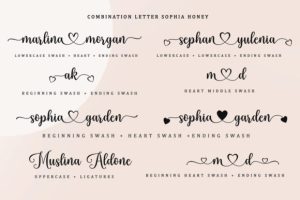 COMBINATION LETTER SOPHIA HONEY
marlina morgan
LOWERCASE SWASH + HEART + ENDING SWASH
sephan yulenia
LOWERCASE SWASH + LOWERCASE + ENDING SWASH
ak
BEGINNING SWASH + ENDING SWASH
m d
HEART MIDDLE SWASH
sophia garden
sophia garden
BEGINNING SWASH + HEART SWASH + ENDING SWASH
Muslina Aldone
UPPERCASE + LIGATURES
m d
BEGINNING HEART SWASH + ENDING SWASH